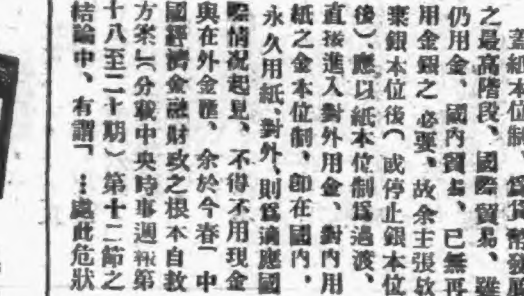 蓋紙本位制、爲貨幣發展
之最高階段、國際貿易、雖
仍用金、國內貿易、已無再
用金銀之必要、故余主張放
棄銀本位後（或停止銀本位
後）、應以紙本位制爲過渡、
直接進入對外用金、對內用
紙之金本位制、卽在國內、
永久用紙、對外、則爲適應國
際情況起見、不得不用現金
與在外金匯、余於今春「中
國經濟金融財政之根本自救
方案」（分載中央時事週報第
十八至二十期）第十二節之
結論中、有謂「…處此危狀